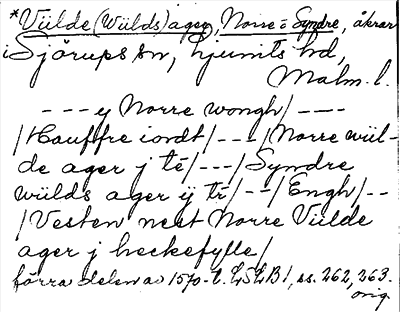 *Viilde (Wiilds) ager, Norre = Syndre, åkrar
i Sjörups sn, Ljunits hd,
Malm. l.
--- ÿ Norre wongh / ----
/ Hauffre iordt / --- / Norre wiil-
de ager j tÿ / --- / Syndre
wiilds ager ÿ tÿ / -- / Engh / --
/ Vesten nest Norre Viilde
ager j heckefylle /
förra delen av 1570-t. LSLB 1, ss. 262, 263.
orig.